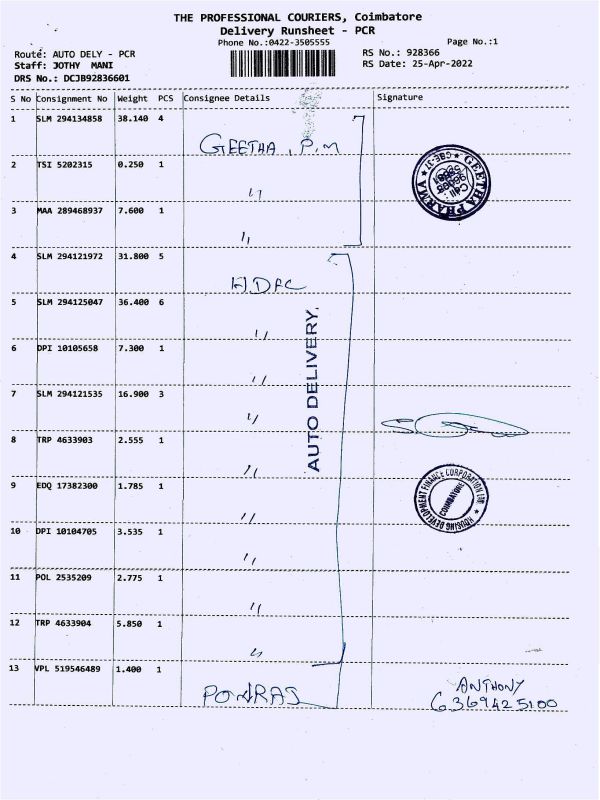 THE PROFESSIONAL COURIERS, Coimbatore
Delivery Runsheet - PCR
Phone No.:0422-3505555
Page No.:1
Route: AUTO DELY - PCR
RS No.: 928366
Staff: JOTHY MANI
RS Date: 25-Apr-2022
DRS No.: DCJB92836601
S No Consignment No Weight PCS Consignee Details Signature
1 SLM 294134858 38.140 4
GEETHA. P.M
2 TSI 5202315 0.250 1
〃
GEETHA PHARMA ★ CBE-37 ★
3 MAA 289468937 7.600 1
〃
4 SLM 294121972 31.800 5
H.DFC
5 SLM 294125047 36.400 6
〃
AUTO DELIVERY.
6 DPI 10105658 7.300 1
〃
7 SLM 294121535 16.900 3
〃
8 TRP 4633903 2.555 1
〃
9 EDQ 17382300 1.785 1
〃
HOUSING DEVELOPMENT FINANCE CORPORATION LTD. ★
COIMBATORE
10 DPI 10104705 3.535 1
〃
11 POL 2535209 2.775 1
〃
12 TRP 4633904 5.850 1
〃
13 VPL 519546489 1.400 1
PONRAJ
ANTHONY
6369425100